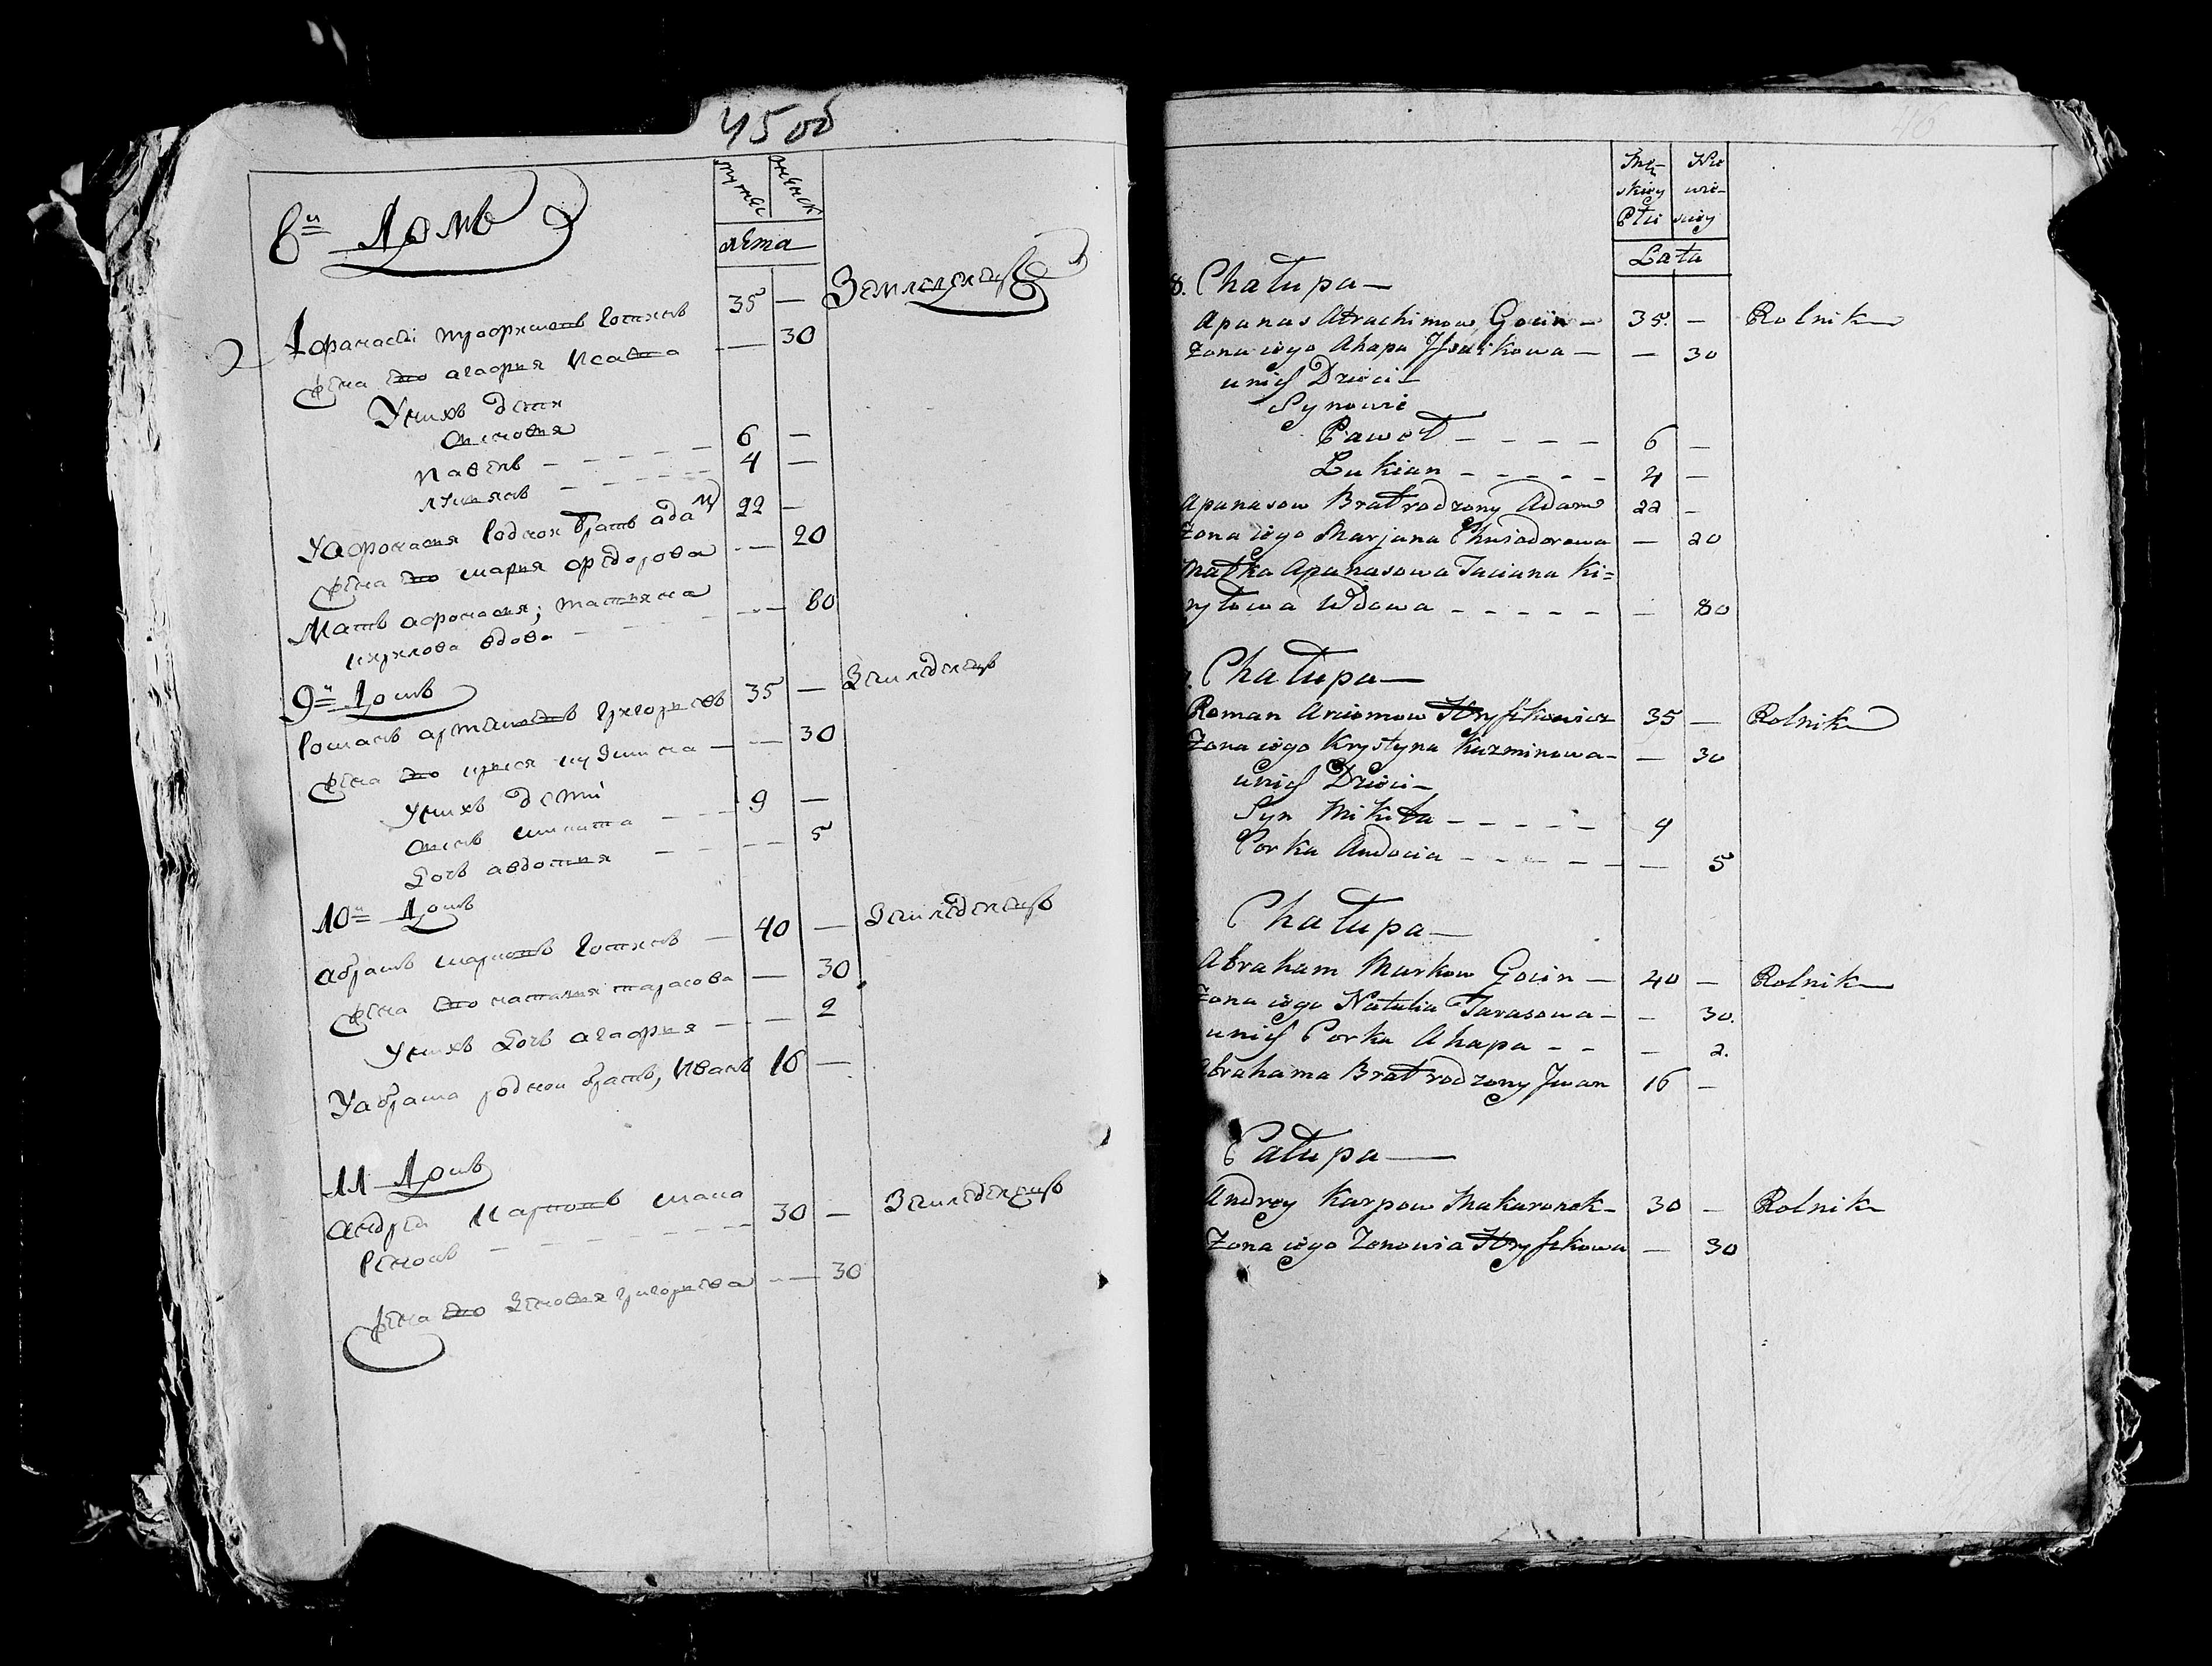 45 об
мужес женск
лета
8й Домъ
Афанасеи трофимовъ Готинъ 35 — Земледелецъ
жена его агафия Исаева — 30
У нихъ дети
Сыновия
Павелъ — — — — 6 —
лукянъ — — — — 4 —
У афонасия Родной братъ адамъ 22 —
жена его мария федорова — 20
Мать афонасия; татияна — 80
кирилова вдова —
9й Домъ
Романъ артемовъ Григориевъ 35 — Земледелецъ
жена его кузмина — — 30
У нихъ дети
Сынъ микита — — 9 —
Дочь авдотия — — — 5
10й Домъ
абрамъ марковъ Готинъ — 40 — Земледелецъ
жена его наталия тарасова — 30
У нихъ Дочь агафия — — 2
У абрама родной братъ, Иванъ 16 —
11 Домъ
андреи Карповъ мака 30 — Земледелецъ
ренокъ — — — —
жена его Зеновия григориева — 30
46
Mę- Nie
skiey wie-
Płci sciey
Lata
8. Chałupa —
Apanas Atrachimow Gocin — 35. — Rolnik
Zona iego Ahapa Jsaikowa — — 30
u nich Dzieci —
Synowie
Paweł — — — — 6 —
Lukian — — — — 4 —
Apanasow Brat rodzony Adam 22 —
Zona iego Marjana Chwiodorowa — 20
Matka Apanasowa Taciana Ki=
ryłowa Wdowa — — — — — — 80
Chałupa —
Roman Arciomow Hryszkowicz 35 — Rolnik
Zona iego Krystyna Kuzminowa — — 30
u nich Dzieci —
Syn Mikita — — — — — 9
Corka Audocia — — — — — 5
Chałupa —
Abraham Markow Gocin — 40 — Rolnik
Zona iego Natalia Tarasowa — — 30.
u nich Corka Ahapa — — — 2.
Abrahama Brat rodzony Jwan 16 —
Całupa —
Andrey Karpow Makaronek — 30 — Rolnik
Zona iego Zenowia Hryszkowa — 30